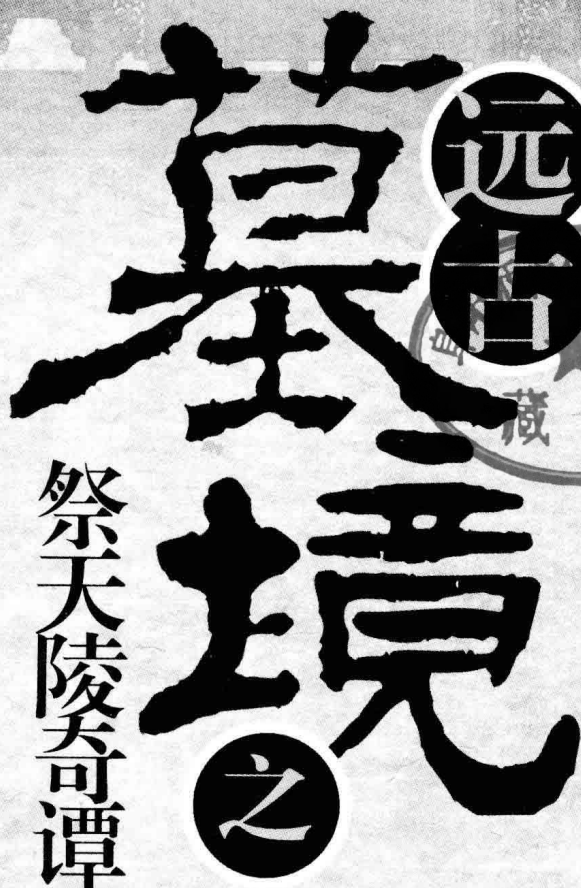 远古
墓境
之
祭天陵奇谭
藏